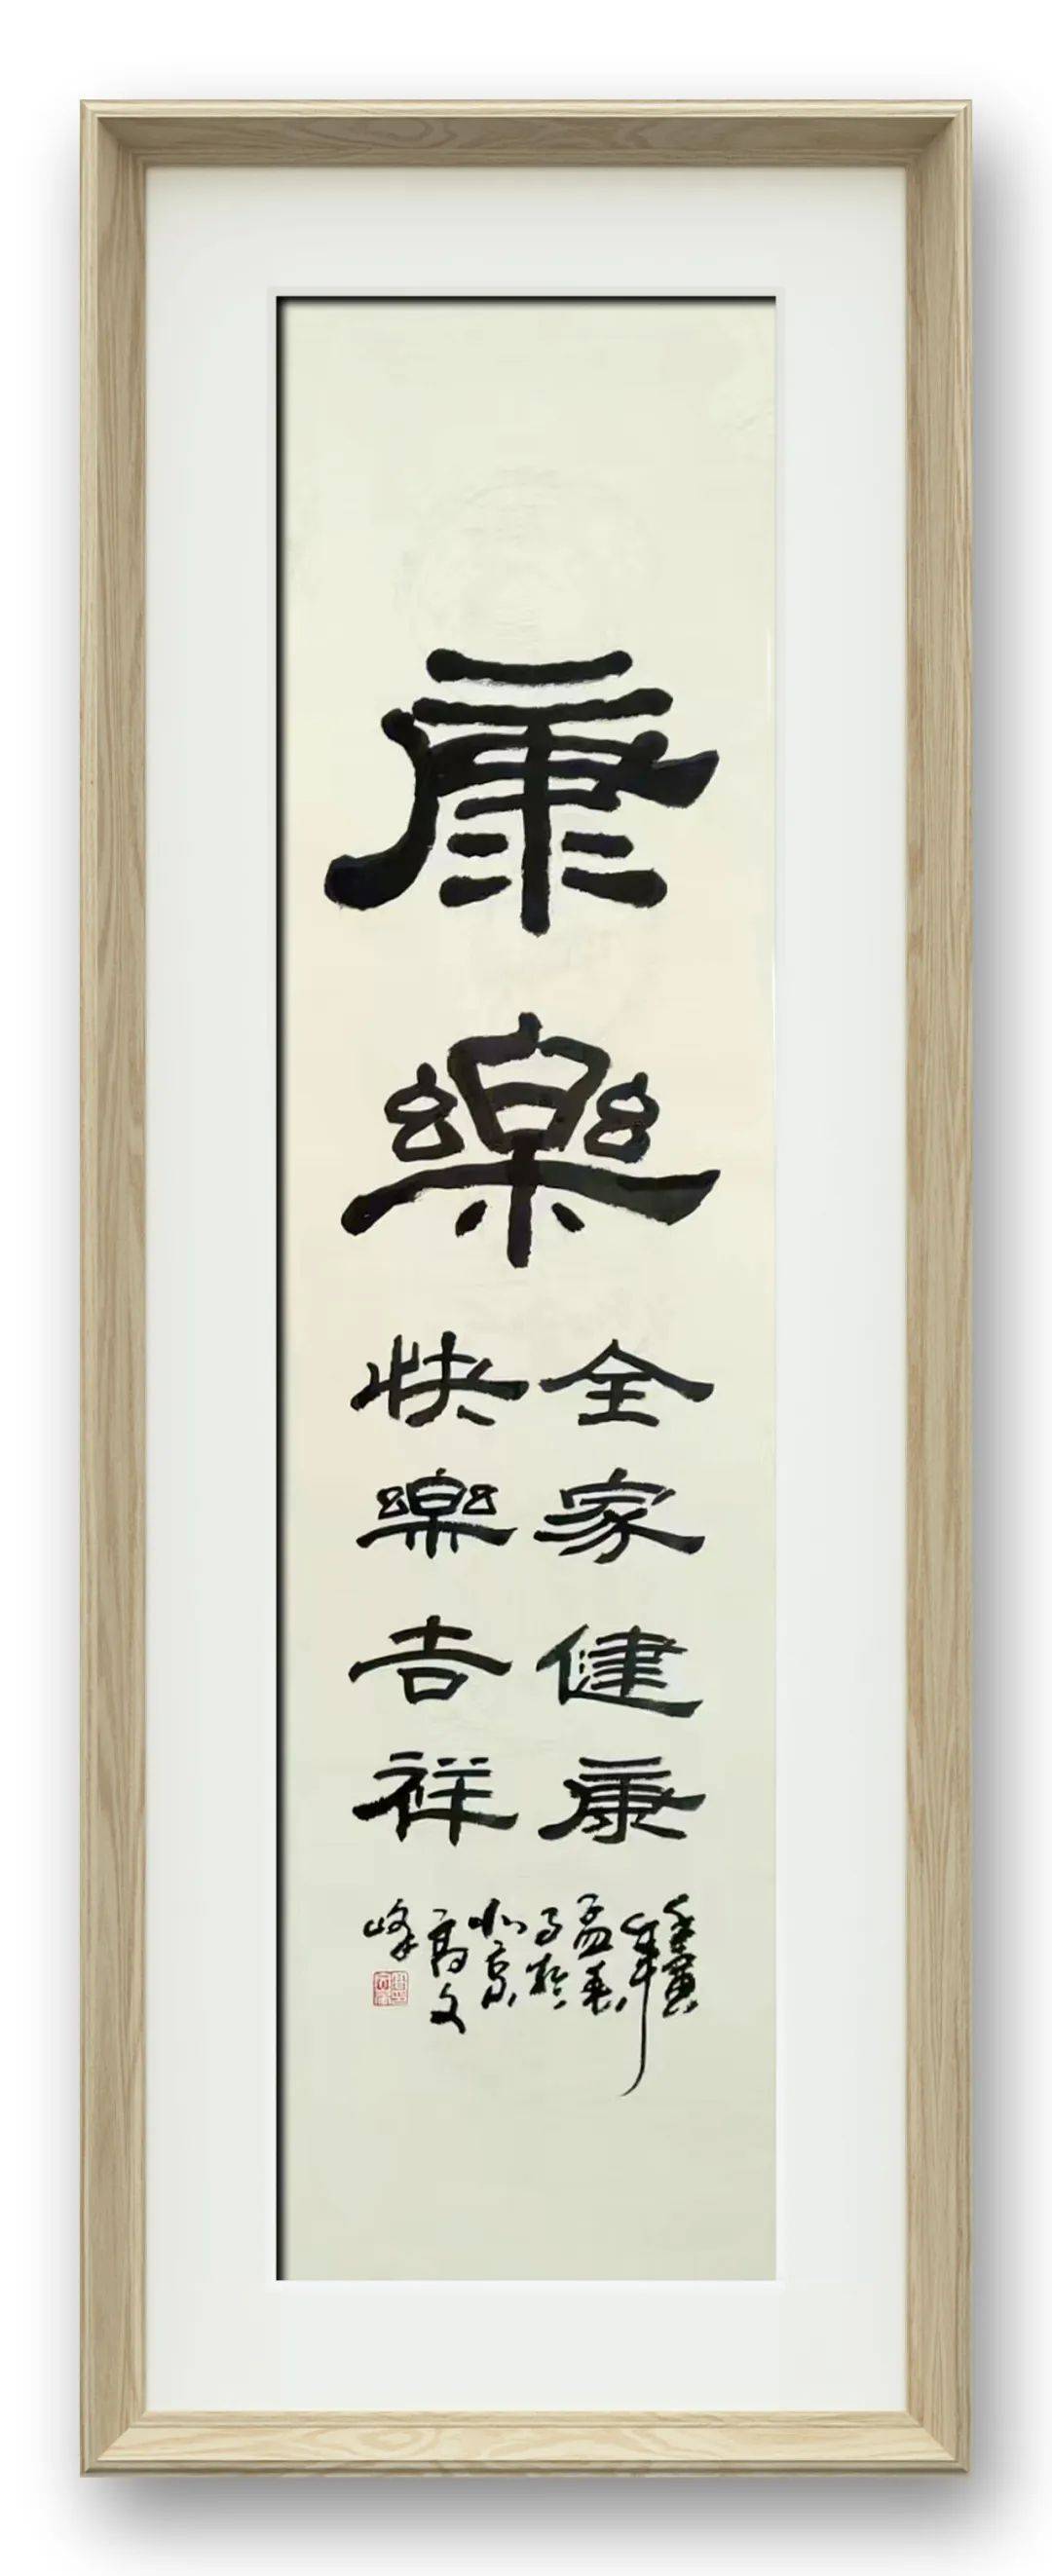 康樂
全家健康
快樂吉祥
壬寅
年
孟春
写於
北京
高文
峰